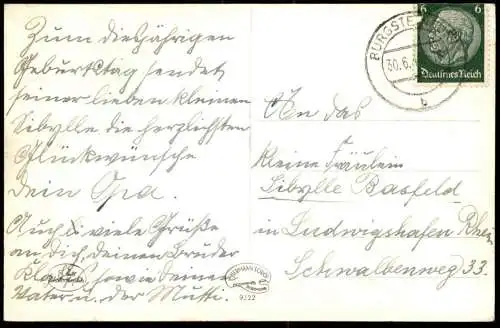 Zum diesjährigen
Geburtstag sendet
seiner lieben kleinen
Sibylle die herzlichsten
Glückwünsche
Dein Opa.
Auch viele Grüße
an Dich, deinen Bruder
Klaus sowie deinen
Vater u. der Mutti.
An das
kleine Fräulein
Sibylle Basfeld
in Ludwigshafen Rhein
Schwalbenweg 33.
BURGSTE
30.6.
b
6 6
Deutsches Reich
9122